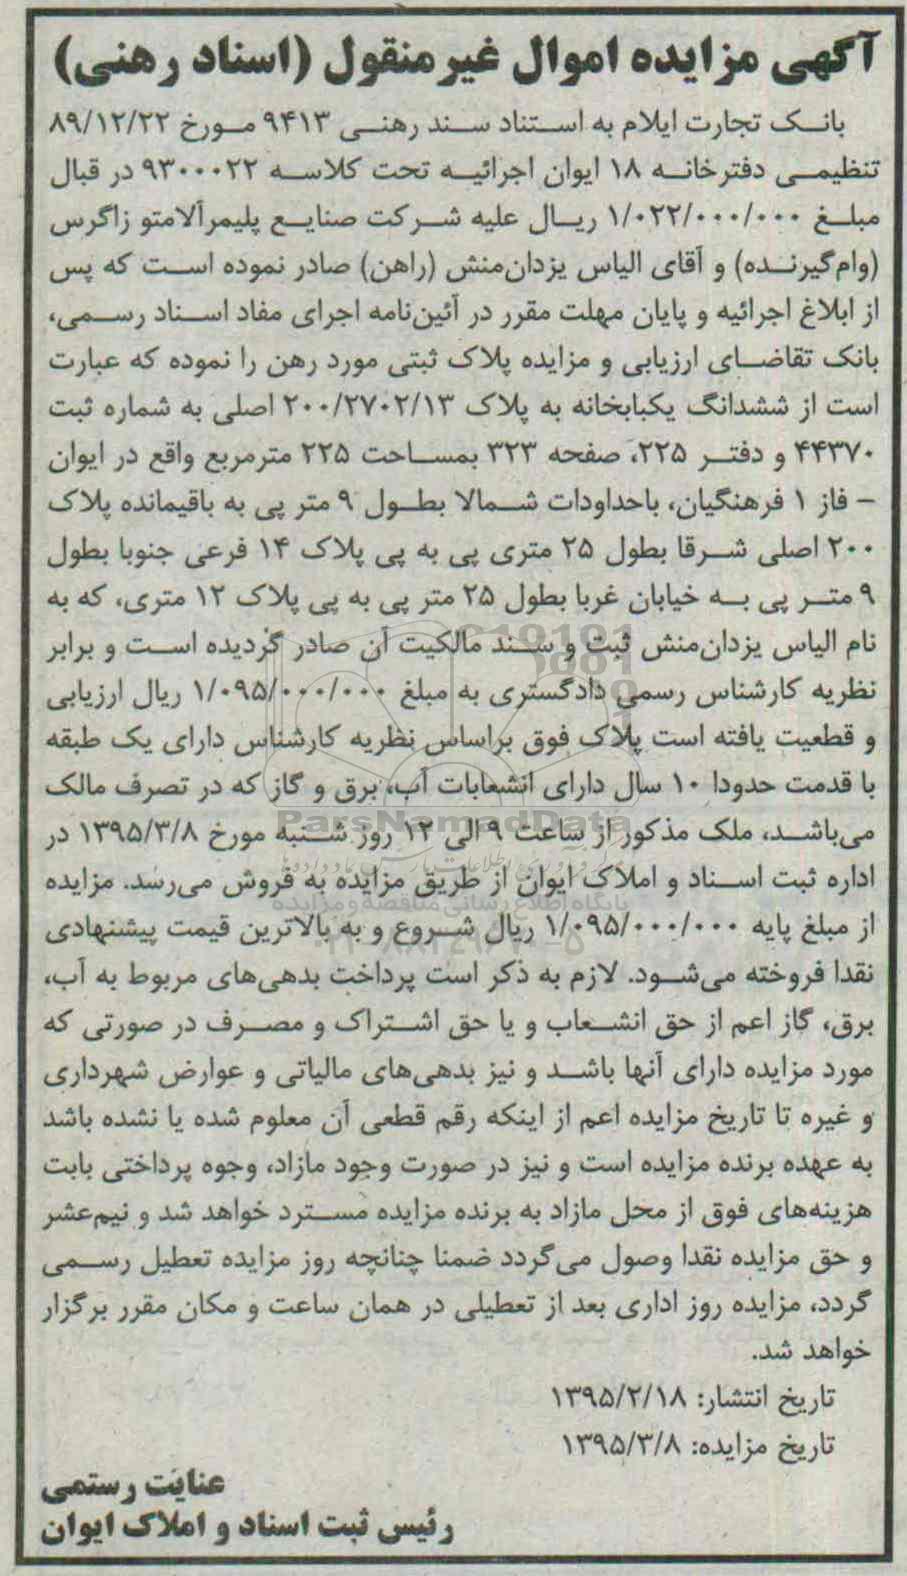 آگهی مزایده اموال غیر منقول (اسناد رهنی)
بانک تجارت ایلام به استناد سند رهنی ۹۴۱۳ مورخ ۸۹/۱۲/۲۲
تنظیمی دفترخانه ۱۸ ایوان اجرائیه تحت کلاسه ۹۳۰۰۰۲۲ در قبال
مبلغ ۱/۰۲۲/۰۰۰/۰۰۰ ریال علیه شرکت صنایع پلیمرآلامتو زاگرس
(وام‌گیرنده) و آقای الیاس یزدان‌منش (راهن) صادر نموده است که پس
از ابلاغ اجرائیه و پایان مهلت مقرر در آئین‌نامه اجرای مفاد اسناد رسمی،
بانک تقاضای ارزیابی و مزایده پلاک ثبتی مورد رهن را نموده که عبارت
است از ششدانگ یکبابخانه به پلاک ۲۰۰/۲۷۰۲/۱۳ اصلی به شماره ثبت
۴۴۳۷۰ و دفتر ۲۲۵، صفحه ۳۲۳ بمساحت ۲۲۵ مترمربع واقع در ایوان
- فاز ۱ فرهنگیان، باحداودات شمالا بطول ۹ متر پی به باقیمانده پلاک
۲۰۰ اصلی شرقا بطول ۲۵ متری پی به پی پلاک ۱۴ فرعی جنوبا بطول
۹ متر پی به خیابان غربا بطول ۲۵ متر پی به پی پلاک ۱۲ متری، که به
نام الیاس یزدان‌منش ثبت و سند مالکیت آن صادر گردیده است و برابر
نظریه کارشناس رسمی دادگستری به مبلغ ۱/۰۹۵/۰۰۰/۰۰۰ ریال ارزیابی
و قطعیت یافته است پلاک فوق براساس نظریه کارشناس دارای یک طبقه
با قدمت حدودا ۱۰ سال دارای انشعابات آب، برق و گاز که در تصرف مالک
می‌باشد، ملک مذکور از ساعت ۹ الی ۱۲ روز شنبه مورخ ۱۳۹۵/۳/۸ در
اداره ثبت اسناد و املاک ایوان از طریق مزایده به فروش می‌رسد. مزایده
از مبلغ پایه ۱/۰۹۵/۰۰۰/۰۰۰ ریال شروع و به بالاترین قیمت پیشنهادی
نقدا فروخته می‌شود. لازم به ذکر است پرداخت بدهی‌های مربوط به آب،
برق، گاز اعم از حق انشعاب و یا حق اشتراک و مصرف در صورتی که
مورد مزایده دارای آنها باشد و نیز بدهی‌های مالیاتی و عوارض شهرداری
و غیره تا تاریخ مزایده اعم از اینکه رقم قطعی آن معلوم شده یا نشده باشد
به عهده برنده مزایده است و نیز در صورت وجود مازاد، وجوه پرداختی بابت
هزینه‌های فوق از محل مازاد به برنده مزایده مسترد خواهد شد و نیم‌عشر
و حق مزایده نقدا وصول می‌گردد ضمنا چنانچه روز مزایده تعطیل رسمی
گردد، مزایده روز اداری بعد از تعطیلی در همان ساعت و مکان مقرر برگزار
خواهد شد.
تاریخ انتشار: ۱۳۹۵/۲/۱۸
تاریخ مزایده: ۱۳۹۵/۳/۸
عنایت رستمی
رئیس ثبت اسناد و املاک ایوان
ParsNamadData
پایگاه اطلاع رسانی مناقصه و مزایده